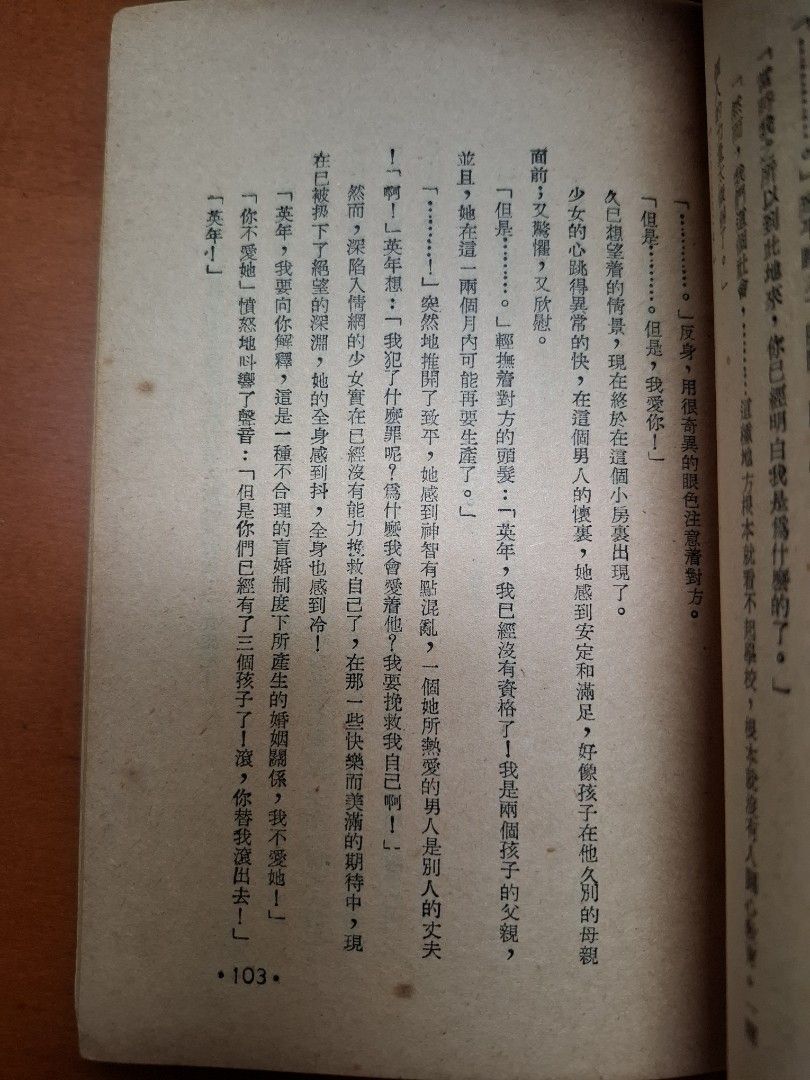 「當時我之所以到此地來，你已經明白我是爲什麽的了。」
「…………。」反身，用很奇異的眼色注意着對方。
「但是………。但是，我愛你！」
久已想望着的情景，現在終於在這個小房裏出現了。
少女的心跳得異常的快，在這個男人的懷裏，她感到安定和滿足，好像孩子在他久別的母親
面前；又驚懼，又欣慰。
「但是………。」輕撫着對方的頭髮：「英年，我已經沒有資格了！我是兩個孩子的父親，
並且，她在這一兩個月內可能再要生產了。」
「………！」突然地推開了致平，她感到神智有點混亂，一個她所熱愛的男人是別人的丈夫
！「啊！」英年想：「我犯了什麽罪呢？爲什麽我會愛着他？我要挽救我自己啊！」
然而，深陷入情網的少女實在已經沒有能力挽救自己了，在那一些快樂而美滿的期待中，現
在已被扔下了絕望的深淵，她的全身感到抖，全身也感到冷！
「英年，我要向你解釋，這是一種不合理的盲婚制度下所產生的婚姻關係，我不愛她！」
「你不愛她」憤怒地呌響了聲音：「但是你們已經有了三個孩子了！滾，你替我滾出去！」
「英年！」
•103•